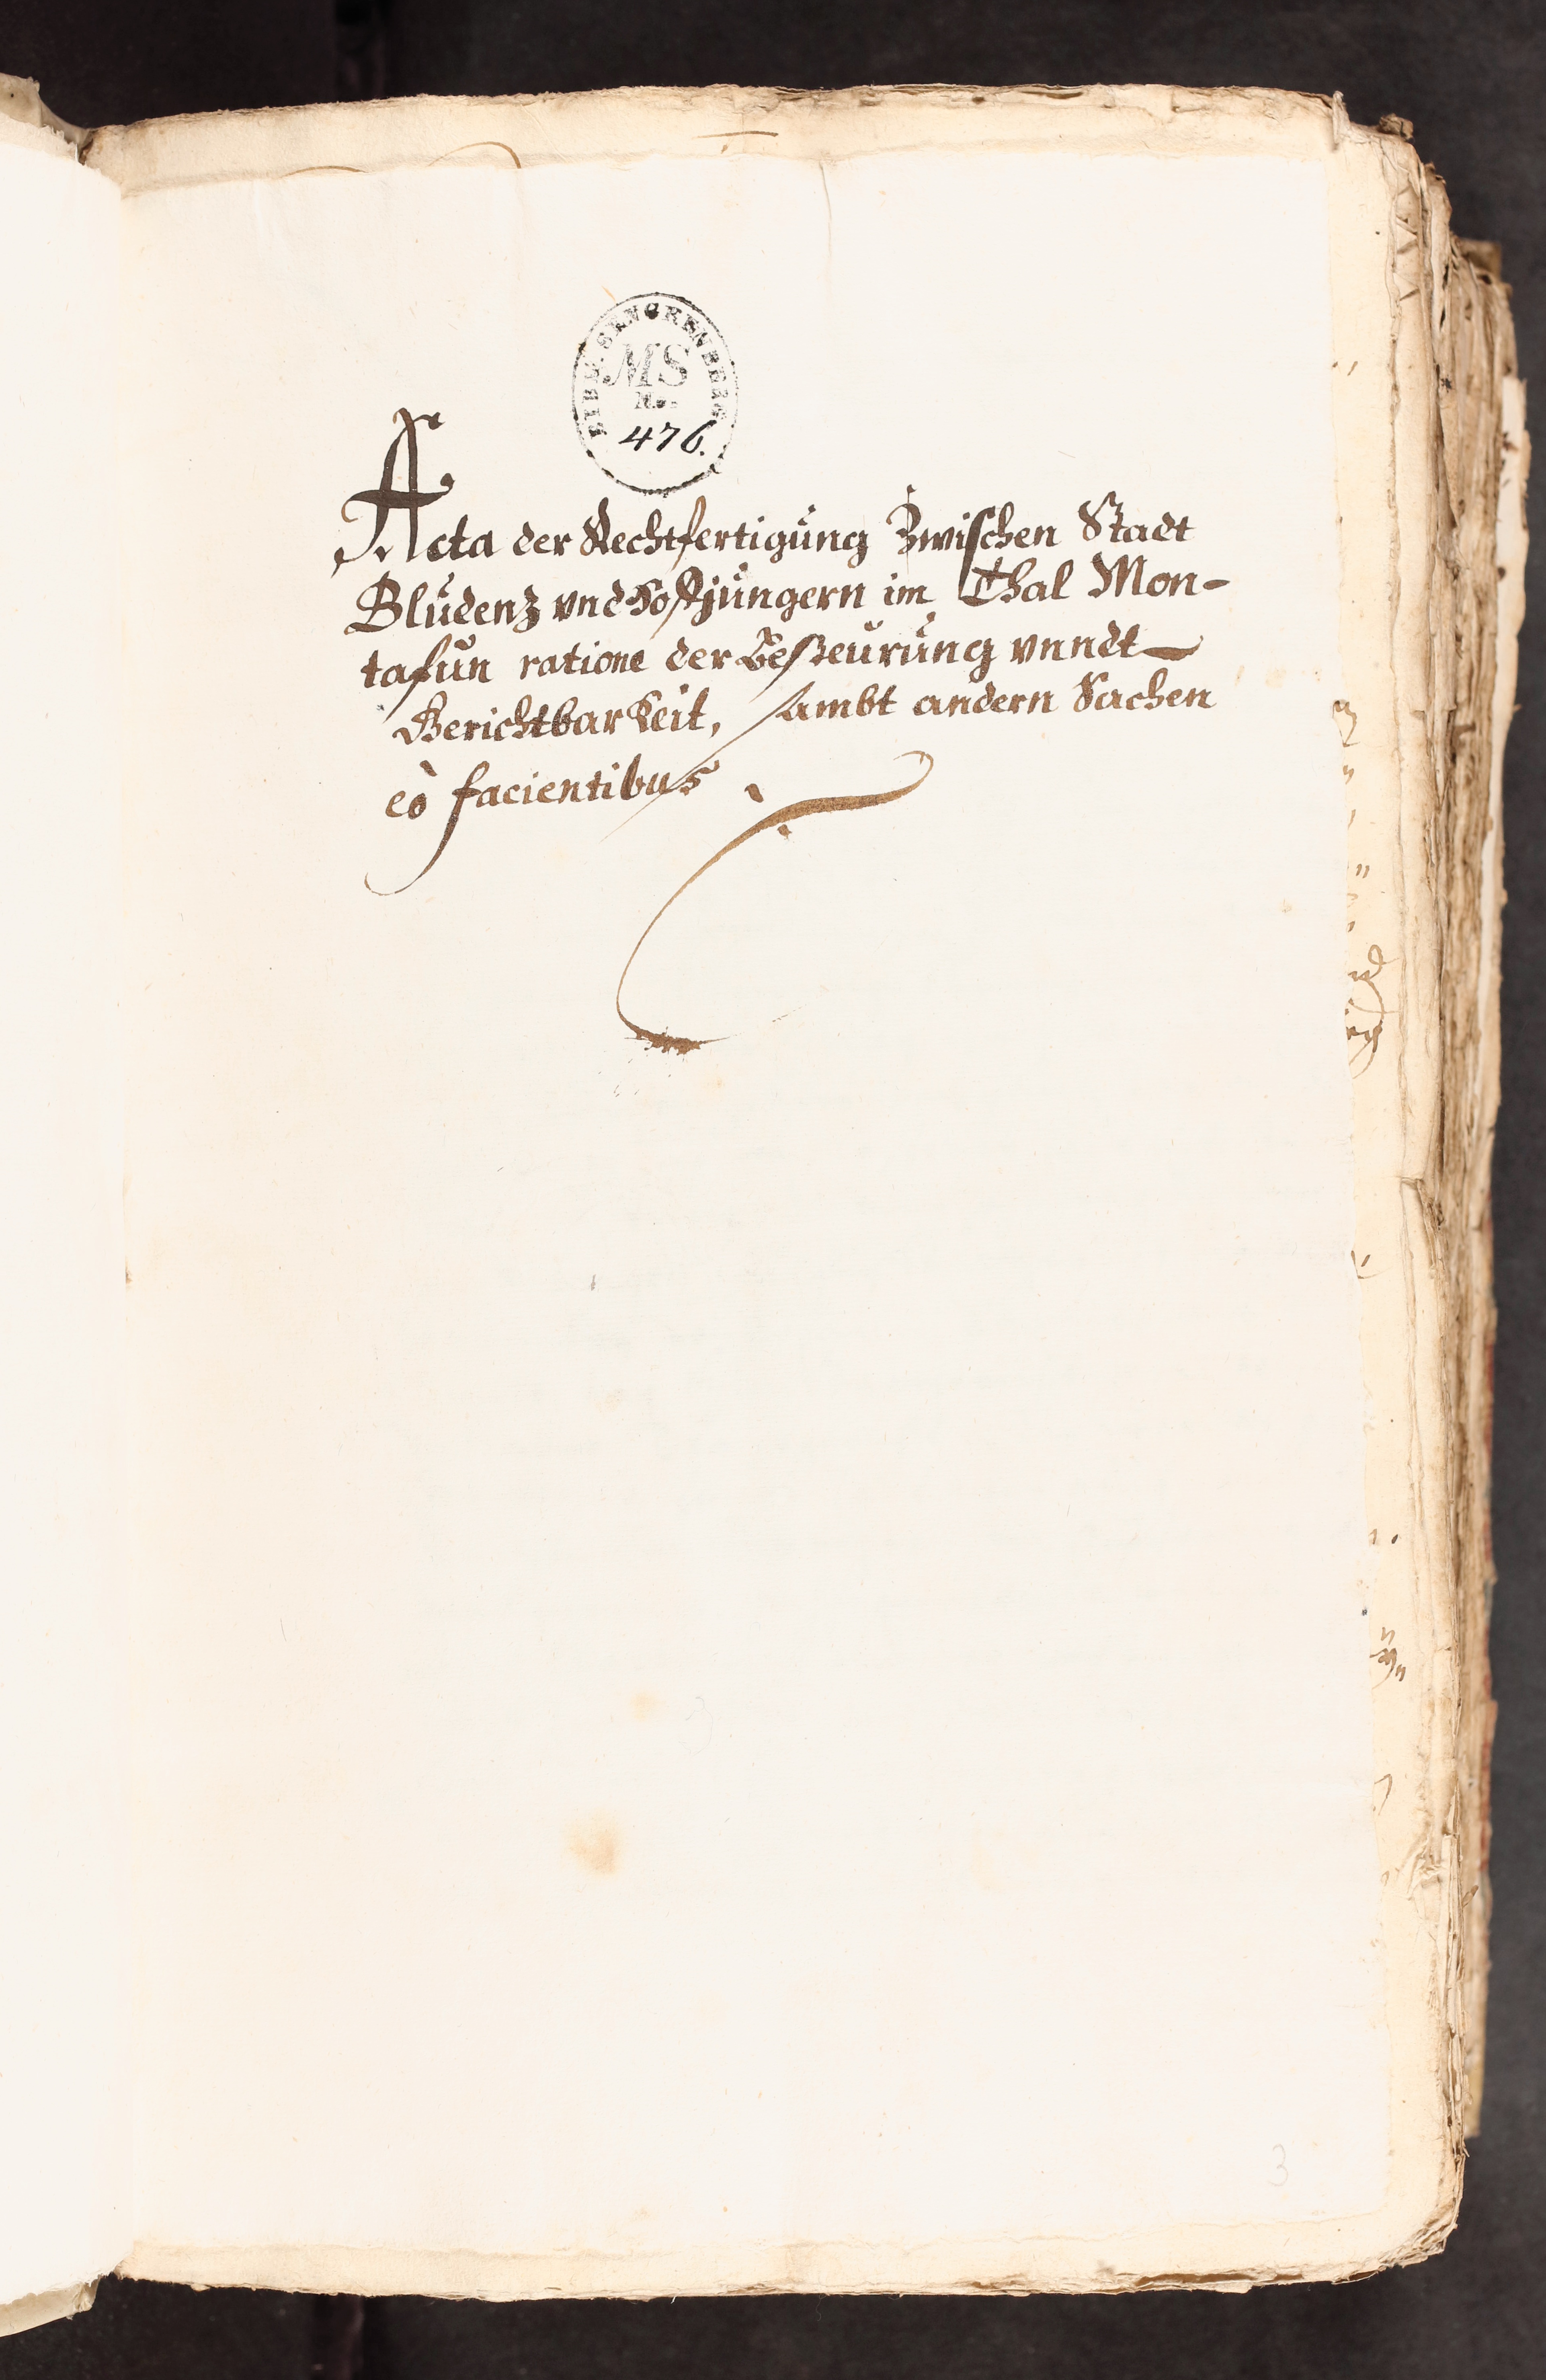 BIBL. SENCKENBERG
MS
No.
476.
Acta der Rechtfertigung Zwischen Stadt
Bludenz vnd Hoffjüngern im Thal Mon-
tafun ratione der Besteurung vnndt
Gerichtbarkeit, sambt andern Sachen
eò facientibus.
3